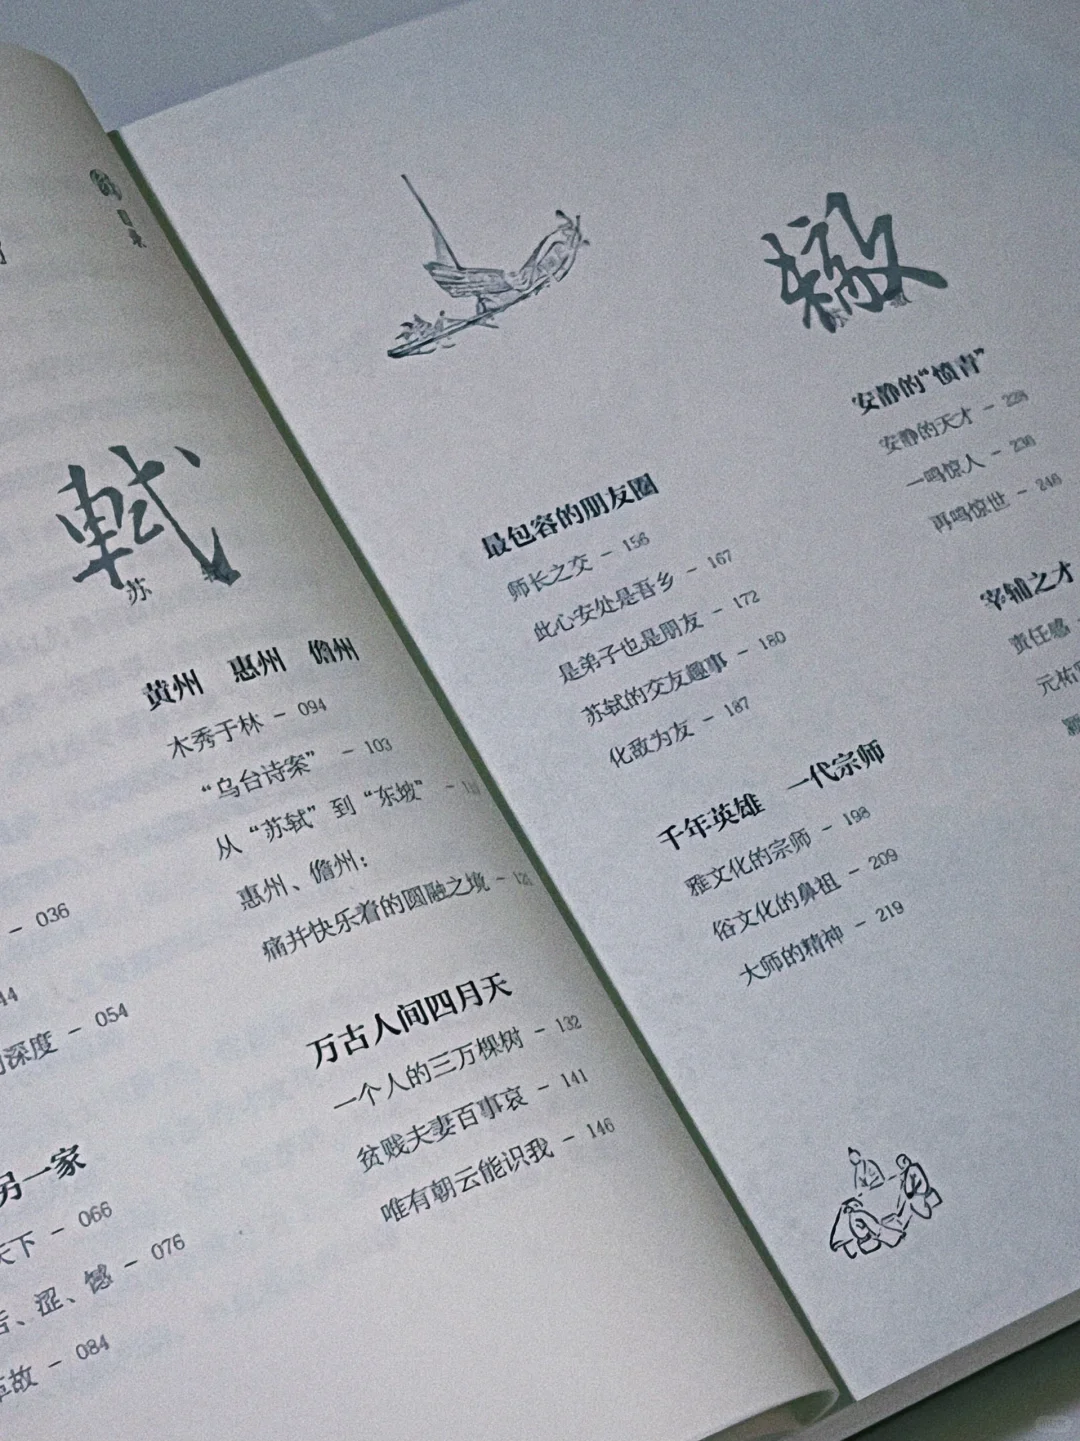 目录
036
44
深度 - 054
另一家
天下 - 066
、涩、憾 - 076
故 - 084
轼
苏 轼
黄州 惠州 儋州
木秀于林 - 094
“乌台诗案” - 103
从“苏轼”到“东坡” -
惠州、儋州：
痛并快乐着的圆融之境 - 121
万古人间四月天
一个人的三万棵树 - 132
贫贱夫妻百事哀 - 141
唯有朝云能识我 - 146
最包容的朋友圈
师长之交 - 156
此心安处是吾乡 - 167
是弟子也是朋友 - 172
苏轼的交友趣事 - 180
化敌为友 - 187
千年英雄 一代宗师
雅文化的宗师 - 198
俗文化的鼻祖 - 209
大师的精神 - 219
辙
苏 辙
安静的“愤青”
安静的天才 - 228
一鸣惊人 - 236
再鸣惊世 - 246
宰辅之才
责任感
元祐